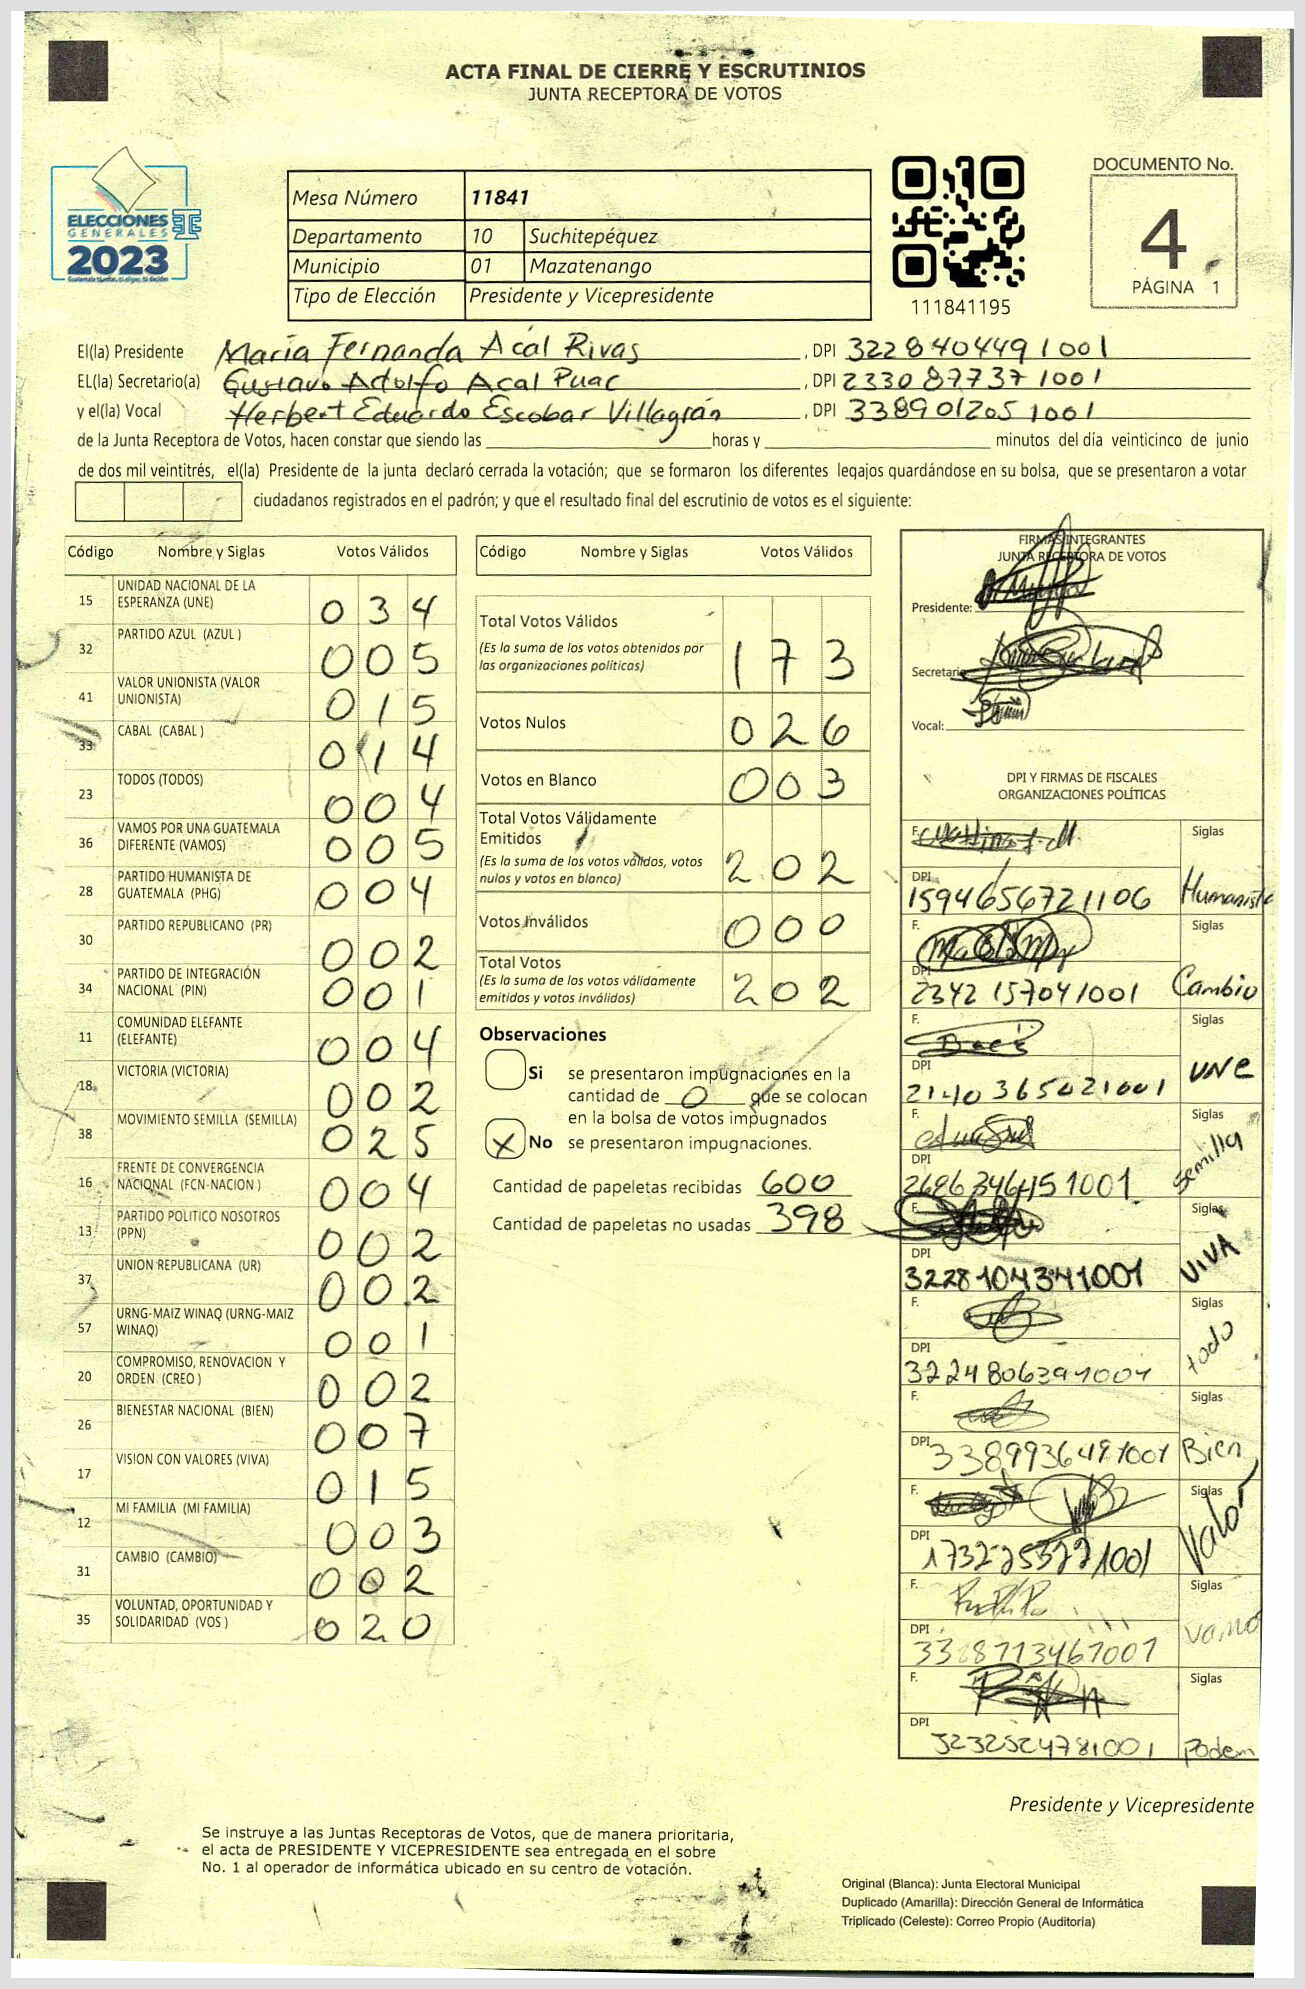 ACTA FINAL DE CIERRE Y ESCRUTINIOS
JUNTA RECEPTORA DE VOTOS
ELECCIONES
GENERALES
2023
Mesa Número 11841
Departamento 10 Suchitepéquez
Municipio 01 Mazatenango
Tipo de Elección Presidente y Vicepresidente
111841195
DOCUMENTO No.
4
PÁGINA 1
El(la) Presidente Maria Fernanda Acal Rivas, DPI 3228404491001
EL(la) Secretario(a) Gustavo Adolfo Acal Puac, DPI 2330877371001
y el(la) Vocal Herbert Eduardo Escobar Villagrán, DPI 3389012051001
de la Junta Receptora de Votos, hacen constar que siendo las horas y minutos del día veinticinco de junio
de dos mil veintitrés, el(la) Presidente de la junta declaró cerrada la votación; que se formaron los diferentes legajos quardándose en su bolsa, que se presentaron a votar
ciudadanos registrados en el padrón; y que el resultado final del escrutinio de votos es el siguiente:
Código Nombre y Siglas Votos Válidos
15 UNIDAD NACIONAL DE LA ESPERANZA (UNE) 034
32 PARTIDO AZUL (AZUL ) 005
41 VALOR UNIONISTA (VALOR UNIONISTA) 015
33 CABAL (CABAL ) 014
23 TODOS (TODOS) 004
36 VAMOS POR UNA GUATEMALA DIFERENTE (VAMOS) 005
28 PARTIDO HUMANISTA DE GUATEMALA (PHG) 004
30 PARTIDO REPUBLICANO (PR) 002
34 PARTIDO DE INTEGRACIÓN NACIONAL (PIN) 001
11 COMUNIDAD ELEFANTE (ELEFANTE) 004
18 VICTORIA (VICTORIA) 002
38 MOVIMIENTO SEMILLA (SEMILLA) 025
16 FRENTE DE CONVERGENCIA NACIONAL (FCN-NACION ) 004
13 PARTIDO POLITICO NOSOTROS (PPN) 002
37 UNION REPUBLICANA (UR) 002
57 URNG-MAIZ WINAQ (URNG-MAIZ WINAQ) 001
20 COMPROMISO, RENOVACION Y ORDEN (CREO ) 002
26 BIENESTAR NACIONAL (BIEN) 007
17 VISION CON VALORES (VIVA) 015
12 MI FAMILIA (MI FAMILIA) 003
31 CAMBIO (CAMBIO) 002
35 VOLUNTAD, OPORTUNIDAD Y SOLIDARIDAD (VOS ) 020
Código Nombre y Siglas Votos Válidos
Total Votos Válidos 173
(Es la suma de los votos obtenidos por
las organizaciones políticas)
Votos Nulos 026
Votos en Blanco 003
Total Votos Válidamente
Emitidos 202
(Es la suma de los votos válidos, votos
nulos y votos en blanco)
Votos Inválidos 000
Total Votos 202
(Es la suma de los votos válidamente
emitidos y votos inválidos)
Observaciones
Si se presentaron impugnaciones en la
cantidad de 0 que se colocan
en la bolsa de votos impugnados
X No se presentaron impugnaciones.
Cantidad de papeletas recibidas 600
Cantidad de papeletas no usadas 398
FIRMAS INTEGRANTES
JUNTA RECEPTORA DE VOTOS
Presidente:
Secretario
Vocal:
DPI Y FIRMAS DE FISCALES
ORGANIZACIONES POLÍTICAS
F. Siglas
DPI 1594656721106 Humanista
F. Siglas
DPI 2342157041001 Cambio
F. Siglas
DPI 2140365021001 UNE
F. Siglas
DPI 2686346451001 semilla
F. Siglas
DPI 3228104341001 VIVA
F. Siglas
DPI 3224806391001 todo
F. Siglas
DPI 3389936491001 Bien
F. Siglas
DPI 1732253221001 Valor
F. Siglas
DPI 3328713461001 vamo
F. Siglas
DPI 3232524781001 Podem
Presidente y Vicepresidente
Se instruye a las Juntas Receptoras de Votos, que de manera prioritaria,
el acta de PRESIDENTE Y VICEPRESIDENTE sea entregada en el sobre
No. 1 al operador de informática ubicado en su centro de votación.
Original (Blanca): Junta Electoral Municipal
Duplicado (Amarilla): Dirección General de Informática
Triplicado (Celeste): Correo Propio (Auditoría)